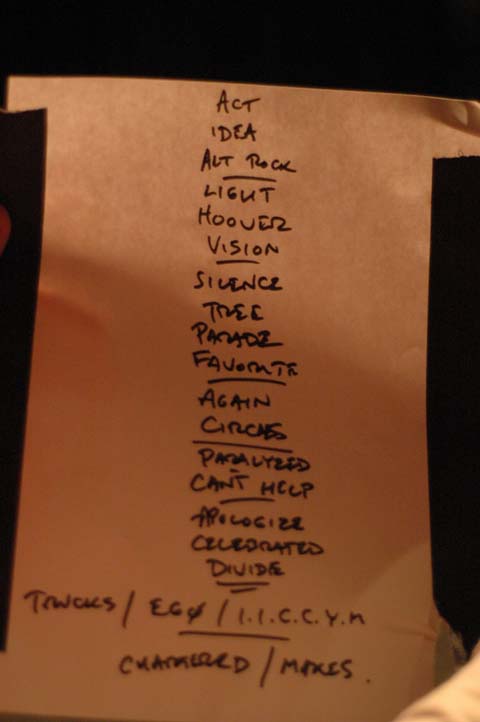 ACT
IDEA
ALT ROCK
LIGHT
HOOVER
VISION
SILENCE
TREE
PARADE
FAVORITE
AGAIN
CIRCLES
PARALYZED
CAN'T HELP
APOLOGIZE
CELEBRATED
DIVIDE
TRUCKS / EGØ / I.I.C.C.Y.M
CHATTERED / MAKES.